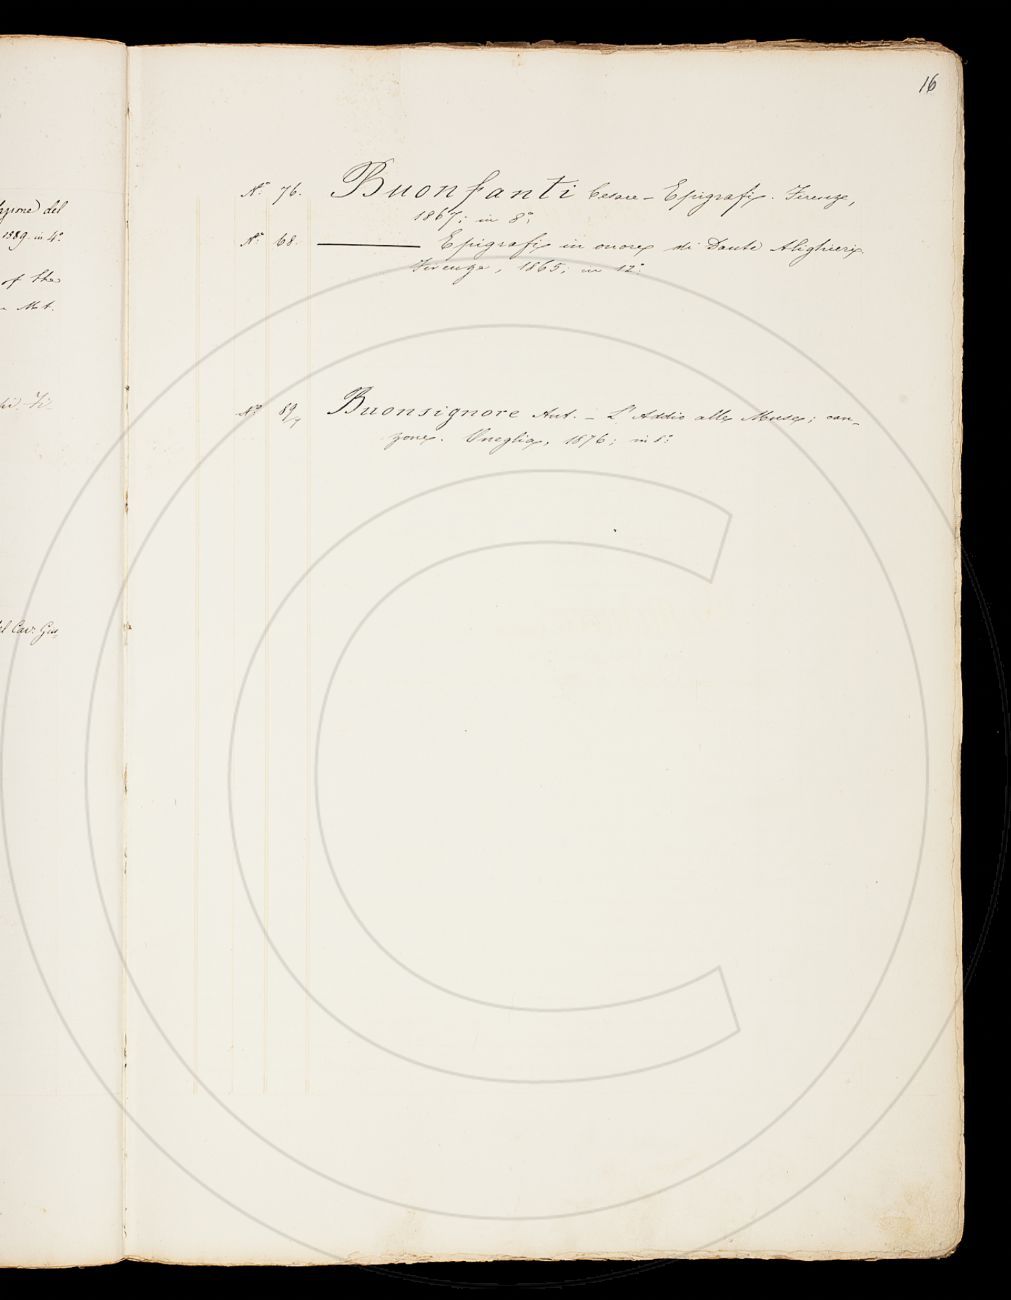 16
azione del
1589. in 4.°
of the
Mt.
el Cav. Giu_
N.° 76. Buonfanti Cesare - Epigrafi. Firenze,
1867; in 8.°
N.° 68. ——— Epigrafi in onore di Dante Alighieri.
Firenze, 1865; in 12.°
N.° 89 Buonsignore Ant. - L'Addio alle Muse; can_
zone. Oneglia, 1876; in 8.°